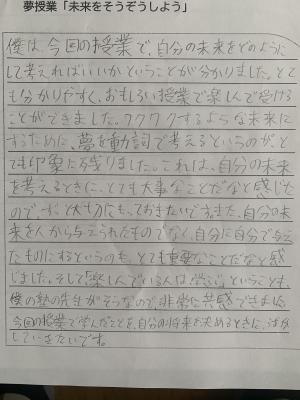 夢授業「未来をそうぞうしよう」
僕は、今回の授業で、自分の未来をどのように
して考えればいいかということが分かりました。とて
も分かりやすく、おもしろい授業で楽しんで受ける
ことができました。ワクワクするような未来に
するために、夢を動詞で考えるというのが、と
ても印象に残りました。これは、自分の未来
を考えるときに、とても大事なことだなと感じた
ので、ずっと大切にもっておきたいです。また、自分の未
来を人から与えられたものでなく、自分に自分で与え
たものにするというのも、とても重要なことだなと感
じました。そして「楽しんでいる人は、学ぶ」ということも、
僕の塾の先生がそうなので、非常に共感できました。
今回の授業で学んだことを、自分の将来を決めるときに、活か
していきたいです。